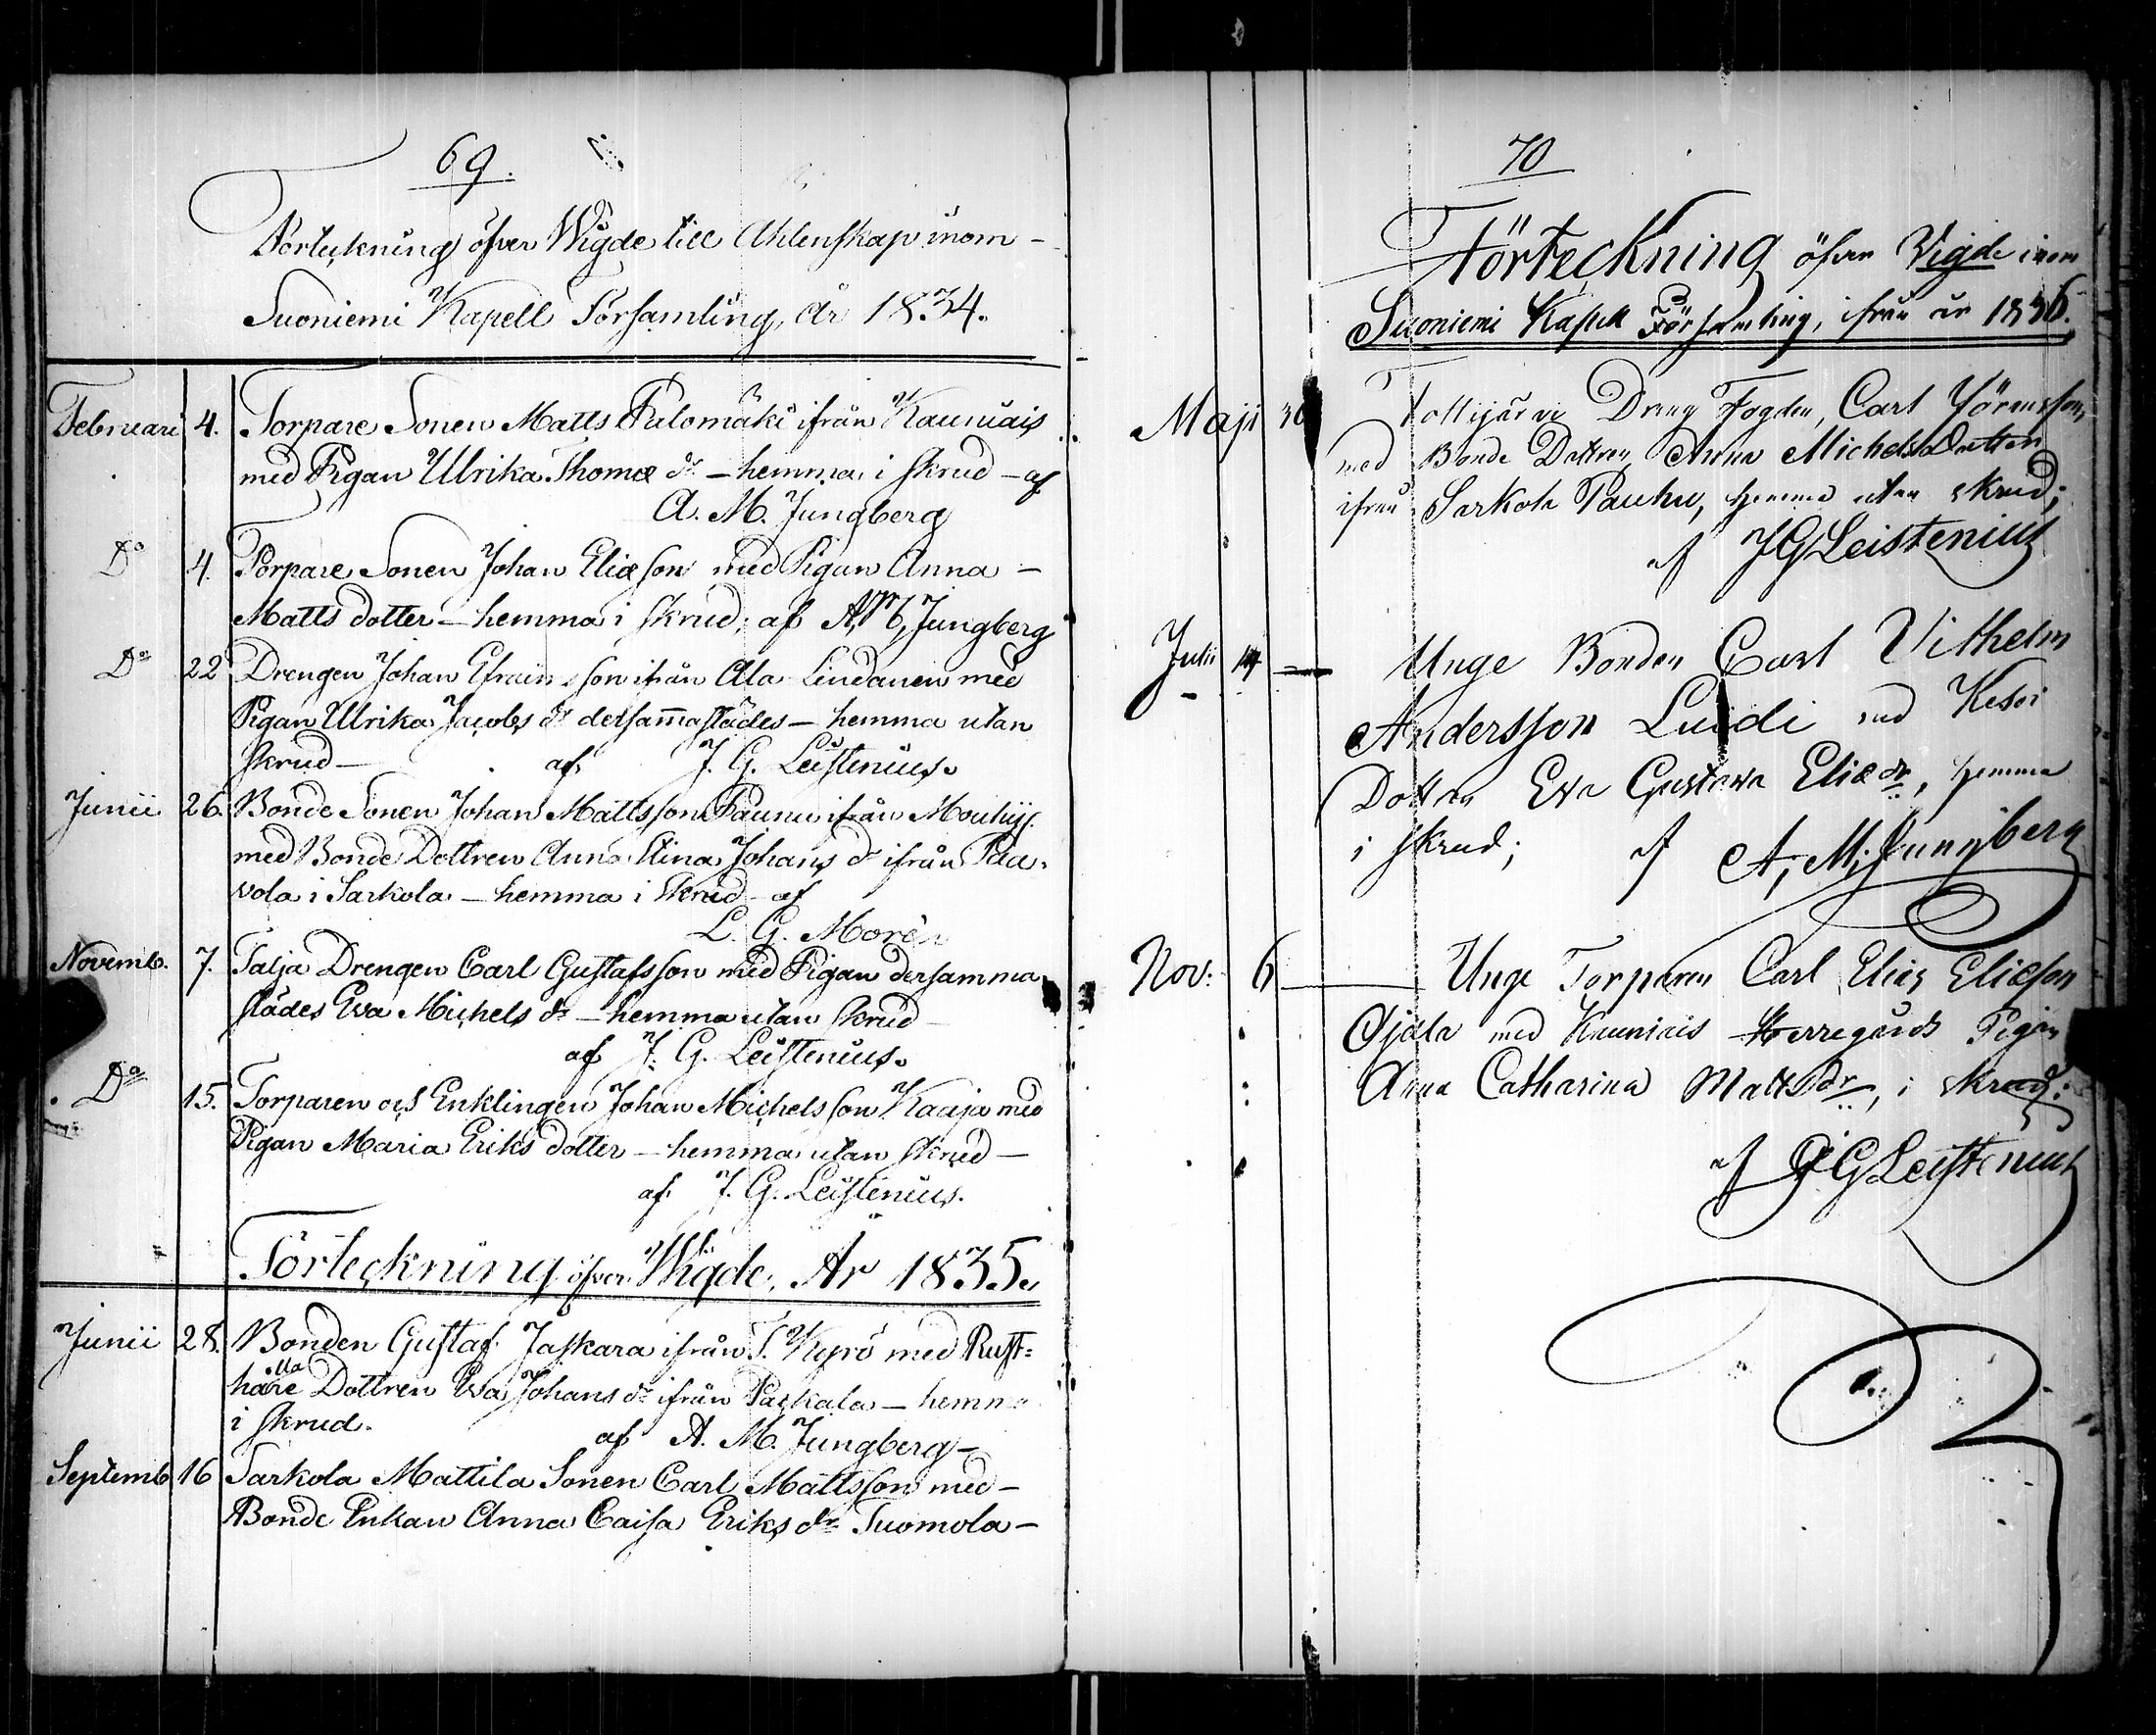 69.
Förteckning öfver Wigde till Ächtenskap inom -
Suoniemi Kapell Församling, År 1834.
Februari 4. Torpare Sonen Matts Palomäki ifrån Kauniais
med Pigan Ulrika Thomæ dr - hemma i skrud - af
A. M. Jungberg
Do 4. Torpare Sonen Johan Eliæson med Pigan Anna -
Matts dotter - hemma i skrud; af A, M, Jungberg
Do 22 Drengen Johan Efraimsson ifrån Ala Lindanen med
Pigan Ulrika Jacobs dr dersammastädes - hemma utan
skrud - af J. G. Leistenius.
Junii 26. Bonde Sonen Johan Mattsson Paunu ifrån Mouhij.
med Bonde Dottren Anna Elina Johans dr ifrån Paa-
vola i Sarkola - hemma i skrud - af
L. G. Morén
Novemb. 7. Talja Drengen Carl Gustafsson med Pigan dersamma
städes Eva Michels dr - hemma utan skrud -
af J. G. Leistenius.
Do 15. Torparen och Enklingen Johan Michelsson Kaaja med
Pigan Maria Eriks dotter - hemma utan skrud -
af J. G. Leistenius.
Förteckning öfver Wigde, År 1835.
Junii 28. Bonden Gustaf Jaskara ifrån T. Kyrö med Rust=
hålla Dottren Eva Johans dr ifrån Paskala - hemma
i skrud. af A. M. Jungberg -
Septemb 16 Sarkola Mattila Sonen Carl Mattsson med -
Bonde Enkan Anna Caisa Eriks dr Tuomola -
70
Förteckning öfver Vigde inom
Suoniemi Kapell Församling, ifrån år 1836.
Maji 30 Tottijärvi Dreng Fogden, Carl Göransson,
med Bonde Dottren Anna Michels Dotter
ifrån Sarkola Pauhu, hemma utan skrud;
af J G Leistenius
Julii 14 - Unge Bonden Carl Vilhelm
Andersson Luodi med Kesti
Dottren Eva Gustava Eliædr, hemma
i skrud; af A, M, Jungberg
Nov: 6 Unge Torparen Carl Elias Eliæson
Ojala med Kauniais Herregårds Pigan
Anna Catharina Mattsdr, i skrud:
af J G Leistenius